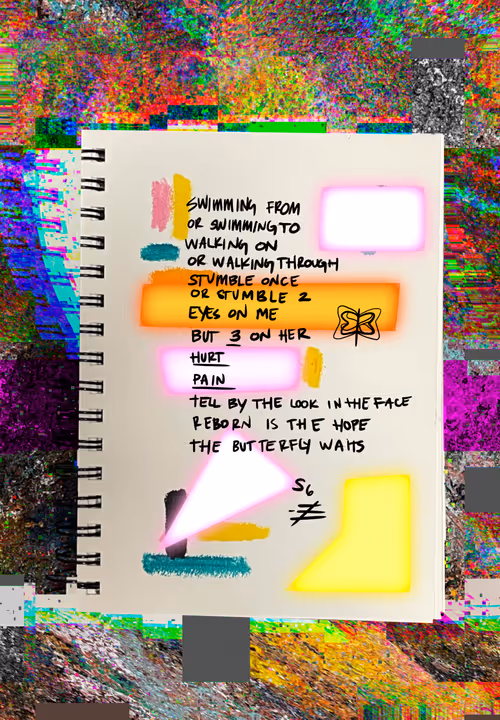 SWIMMING FROM
OR SWIMMING TO
WALKING ON
OR WALKING THROUGH
STUMBLE ONCE
OR STUMBLE 2
EYES ON ME
BUT 3 ON HER
HURT
PAIN
TELL BY THE LOOK IN THE FACE
REBORN IS THE HOPE
THE BUTTERFLY WAITS
S6